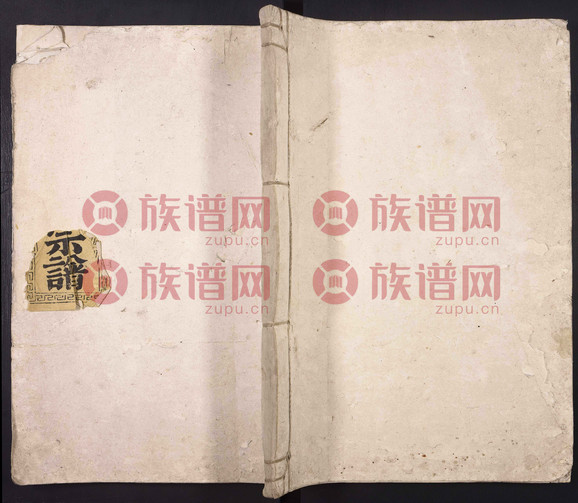 宗譜
族谱网
zupu.cn
族谱网
zupu.cn
族谱网
zupu.cn
族谱网
zupu.cn